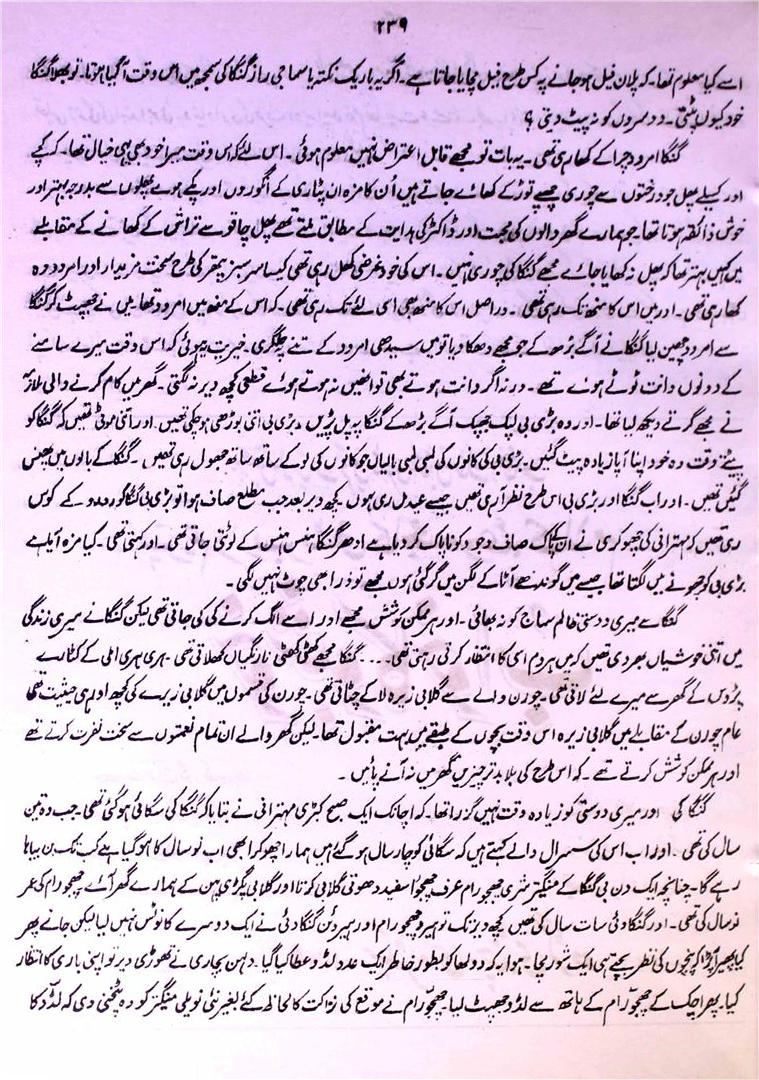 ۲۳۹
اسے کیا معلوم تھا۔ کہ پلان فیل ہو جانے پہ کس طرح فیل مچایا جاتا ہے۔ اگر یہ باریک نکتہ یا سماجی راز گنگا کی سمجھ میں اس وقت آ گیا ہوتا۔ تو بھلا گنگا
خود کیوں پٹتی۔ دوسروں کو نہ پیٹ دیتی ؟
گنگا امرود چرا کے کھا رہی تھی۔ یہ بات تو مجھے قابل اعتراض نہیں معلوم ہوئی۔ اس لئے کہ اس وقت میرا خود بھی یہی خیال تھا۔ کہ کچے
اور کسیلے پھل جو درختوں سے چوری چھپے توڑ کے کھائے جاتے ہیں اُن کا مزہ ان پٹاری کے انگوروں اور پکے ہوئے پھلوں سے بدرجہ بہتر اور
خوش ذائقہ ہوتا تھا۔ جو ہمارے گھر والوں کی محبت اور ڈاکٹر کی ہدایت کے مطابق ملتے تھے پھل چاقو سے تراش کے کھانے کے مقابلے
میں کہیں بہتر تھا کہ پھل نہ کھایا جائے مجھے گنگا کی چوری نہیں۔ اس کی خود غرضی کھل رہی تھی کیسا سر سبز پتھر کی طرح سخت مزیدار اور امرود وہ
کھا رہی تھی۔ اور میں اس کا منھ تک رہی تھی۔ دراصل اس کا منھ بھی اسی لئے تک رہی تھی۔ کہ اس کے منھ میں امرود تھا میں نے جھپٹ کر گنگا
سے امرود چھین لیا گنگا نے آگے بڑھ کے جو مجھے دھکا دیا تو میں سیدھی امرود کے تنے پر جا گری۔ خیریت یہ ہوئی کہ اس وقت میرے سامنے
کے دونوں دانت ٹوٹے ہوئے تھے۔ ورنہ اگر دانت ہوتے بھی تو انھیں نہ ہوتے ہوئے قطعی کچھ دیر نہ لگتی۔ گھر میں کام کرنے والی ملازمہ
نے مجھے گرتے دیکھ لیا تھا۔ اور وہ بڑی بی لپک جھپک آگے بڑھ کے گنگا پہ پل پڑیں۔ بڑی بی اتنی بوڑھی ہو چکی تھیں۔ اور اتنی موٹی تھیں کہ گنگا کو
پیٹتے وقت وہ خود اپنا آپا زیادہ پیٹ گئیں۔ بڑی بی کی کانوں کی لمبی لمبی بالیاں جو کانوں کی لو کے ساتھ ساتھ جھول رہی تھیں۔ گنگا کے بالوں میں پھنس
گئیں تھیں۔ اور اب گنگا اور بڑی بی اس طرح نظر آ رہی تھیں جیسے عید مل رہی ہوں۔ کچھ دیر بعد جب مطلع صاف ہوا تو بڑی بی گنگا کو رو رو کے کوس
رہی تھیں کہ مہترانی کی چھوکری نے ان کے پاک صاف وجود کو ناپاک کر دیا ہے ادھر گنگا ہنس ہنس کے لوٹی جاتی تھی۔ اور کہتی تھی۔ کیا مزہ آیا ہے
بڑی بی کو چھونے میں لگتا تھا جیسے میں گوندھے آٹا کے لگن میں گر گئی ہوں مجھے تو ذرا بھی چوٹ نہیں لگی۔
گنگا سے میری دوستی ظالم سماج کو نہ بھائی۔ اور ہر ممکن کوشش مجھے اور اسے الگ کرنے کی کی جاتی تھی لیکن گنگا نے میری زندگی
میں اتنی خوشیاں بھر دی تھیں کہ میں ہر دم اسی کا انتظار کرتی رہتی تھی .... گنگا مجھے کھٹی کھٹی نارنگیاں کھلاتی تھی۔ ہری ہری املی کے کٹارے
پڑوس کے گھر سے میرے لئے لاتی تھی۔ چورن والے سے گلابی زیرہ لا کے چٹاتی تھی۔ چورن کی قسموں میں گلابی زیرے کی کچھ اور ہی حیثیت تھی
عام چورن کے مقابلے میں گلابی زیرہ اس وقت بچوں کے طبقے میں بہت مقبول تھا۔ لیکن گھر والے ان تمام نعمتوں سے سخت نفرت کرتے تھے
اور ہر ممکن کوشش کرتے تھے۔ کہ اس طرح کی بلا بدتر چیزیں گھر میں نہ آنے پائیں۔
گنگا کی اور میری دوستی کو زیادہ وقت نہیں گزرا تھا۔ کہ اچانک ایک صبح کبڑی مہترانی نے بتایا کہ گنگا کی سگائی ہو گئی تھی۔ جب وہ تین
سال کی تھی۔ اور اب اس کی سسرال والے کہتے ہیں کہ سگائی کو چار سال ہو گئے ہیں ہمارا چھوکرا بھی اب نو سال کا ہو گیا ہے کب تک بن بیاہا
رہے گا۔ چنانچہ ایک دن ہی گنگا کے منگیتر شری چھجو رام عرف چھجوا سفید دھوتی گلابی کرتا اور گلابی پگڑی پہن کے ہمارے گھر آئے چھجو رام کی عمر
نو سال کی تھی۔ اور گنگا وئی سات سال کی تھیں کچھ دیر تک تو ہیرو چھجو رام اور ہیروئن گنگا دئی نے ایک دوسرے کا نوٹس نہیں لیا لیکن جانے پھر
کیا پھیر پڑا کہ پنچوں کی نظر بچتے ہی ایک شور مچا۔ ہوا یہ کہ دولھا کو بطور خاطر ایک عدد لڈو عطا کیا گیا۔ دلہن بچاری نے تھوڑی دیر تو اپنی باری کا انتظار
کیا۔ پھر اچک کے چھجو رام کے ہاتھ سے لڈو جھپٹ لیا۔ چھجو رام نے موقع کی نزاکت کا لحاظ کئے بغیر نئی نویلی منگیتر کو وہ پٹخنی دی کہ لڈو کا